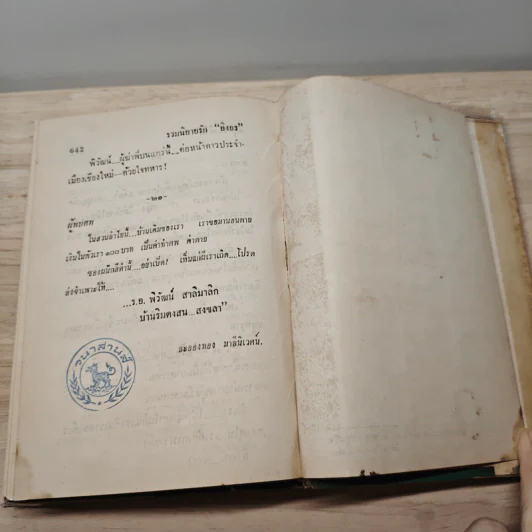 ๖๔๒
รวมนิยายรัก "อิงอร"
พิวัฒน์....ผู้ฆ่าพี่บนแคร่นี้....ต่อหน้าดาวประจำ-
เมืองเชียงใหม่—ด้วยใจทหาร!
—๒๑—
ผู้พบศพ
ในสวนลำไยนี้....บ้านเดิมของเรา เราขอมานอนตาย
เงินในตัวเรา ๑๐๐ บาท เป็นค่าทำศพ ค่าตาย
ซองผนึกสีดำนี้....อย่าเปิด! เห็นแก่ผีเราเถิด....โปรด
ส่งจำเพาะให้....
...ร.อ. พิวัฒน์ สาลิมาลิก
บ้านริมดงสน...สงขลา"
ละอองทอง มาธินิเวศน์.
วนาสานส์